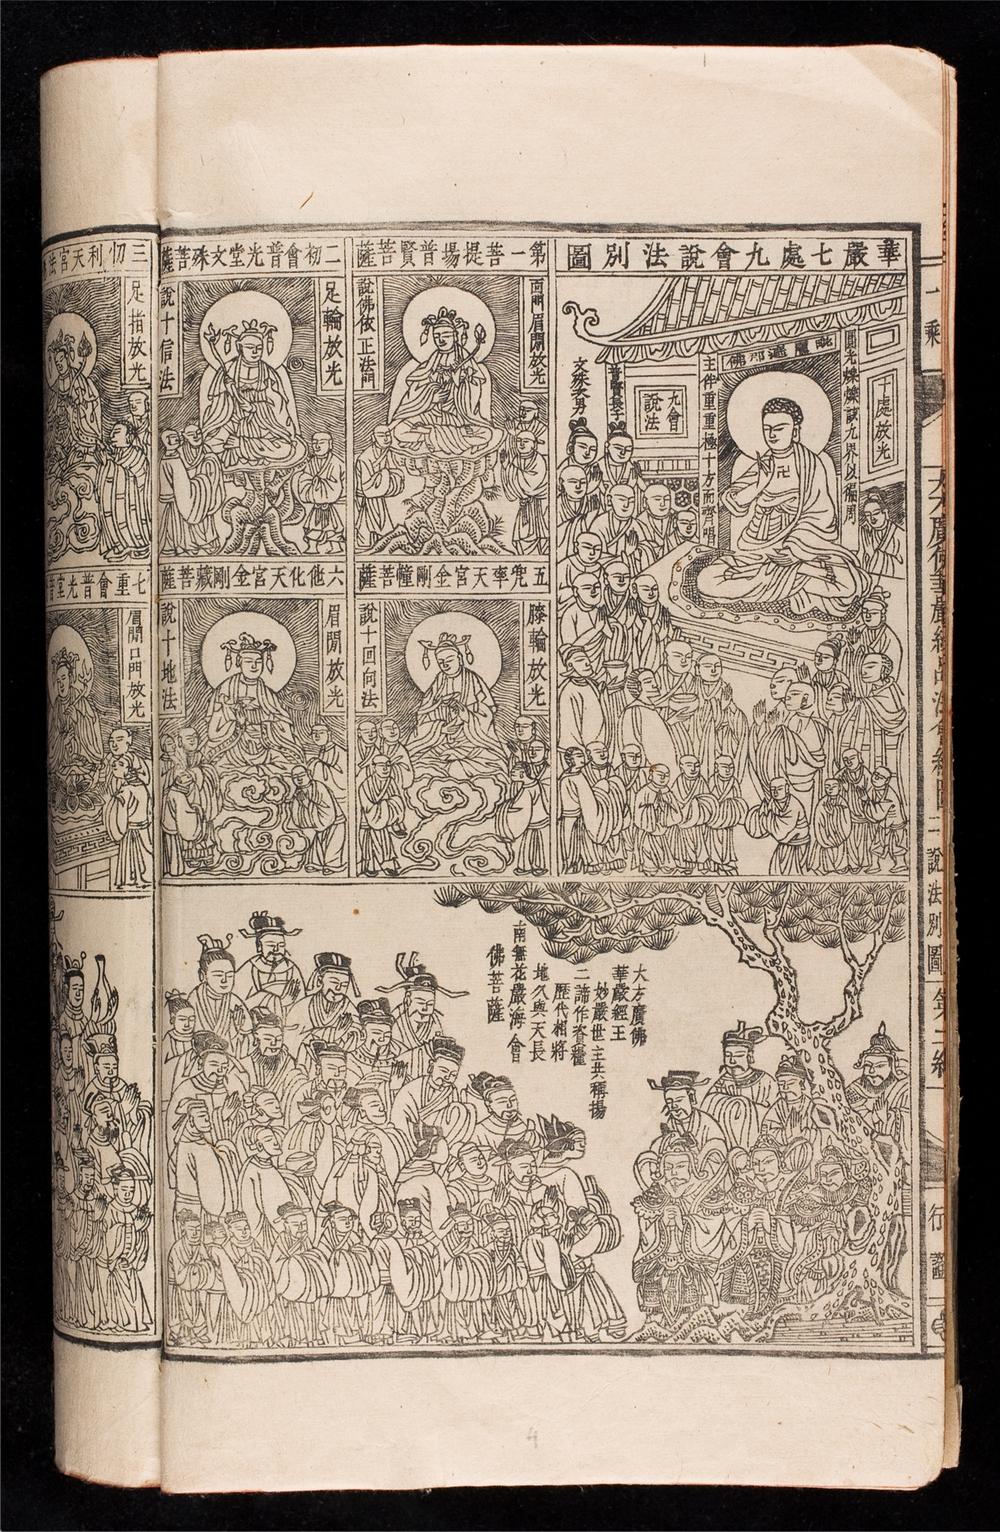 華嚴七處九會說法別圖
十處放光
圓光爍爍破九界以徧周
主伴重重極十方而齊唱
九會
說法
普賢長子
文殊大男
第一菩提場普賢菩薩
面門眉間放光
說佛依正法門
二初會普光堂文殊菩薩
足輪放光
說十信法
三忉利天宮法
足指放光
五兜率天宮金剛幢菩薩
膝輪放光
說十回向法
六他化天宮金剛藏菩薩
眉間放光
說十地法
七重會普光宮普
眉間口門放光
大方廣佛
華嚴經王
妙嚴世主共稱揚
二諦作資糧
歷代相將
地久與天長
南無花嚴海會
佛菩薩
一乘
說法別圖